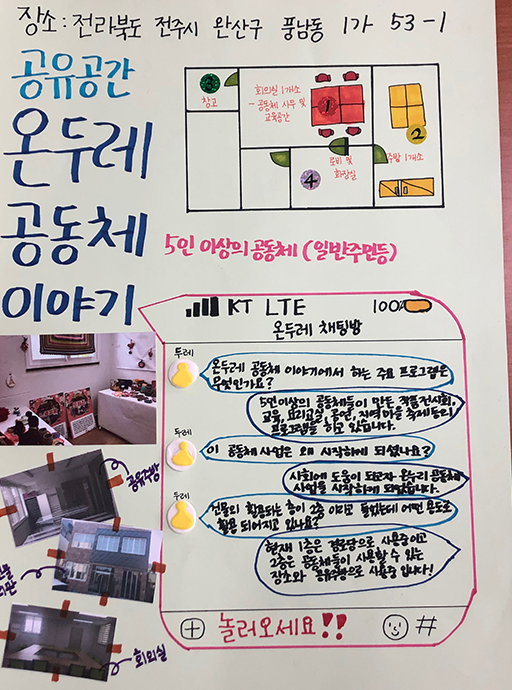 장소: 전라북도 전주시 완산구 풍남동 1가 53-1
공유공간
온두레
공동체
이야기
3
창고
회의실 1개소
- 공동체 사무 및
교육공간
1
2
주방 1개소
로비 및
화장실
4
5인 이상의 공동체 (일반주민등)
KT LTE
100%
온두레 채팅방
두레
온두레 공동체 이야기에서 하는 주요 프로그램은
무엇인가요?
5인이상의 공동체들이 만든 작품전시회,
교육, 요리교실, 공연, 지역마을 축제등의
프로그램을 하고 있습니다.
두레
이 공동체 사업은 왜 시작하게 되셨나요?
사회에 도움이 되고자 온두리 공동체
사업을 시작하게 되었습니다.
두레
건물의 활용되는 층이 2층 이라고 들었는데 어떤 용도로
활용 되어지고 있나요?
현재 1층은 경로당으로 사용중이고
2층은 공동체들이 사용할 수 있는
장소와 공유주방으로 사용중 입니다!
놀러오세요!!
#
공유주방
회의실